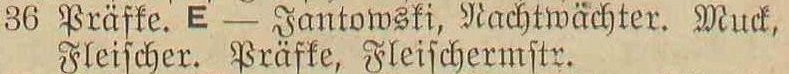 36 Präfke. E — Jantowski, Nachtwächter. Muck,
Fleischer. Präfke, Fleischermstr.